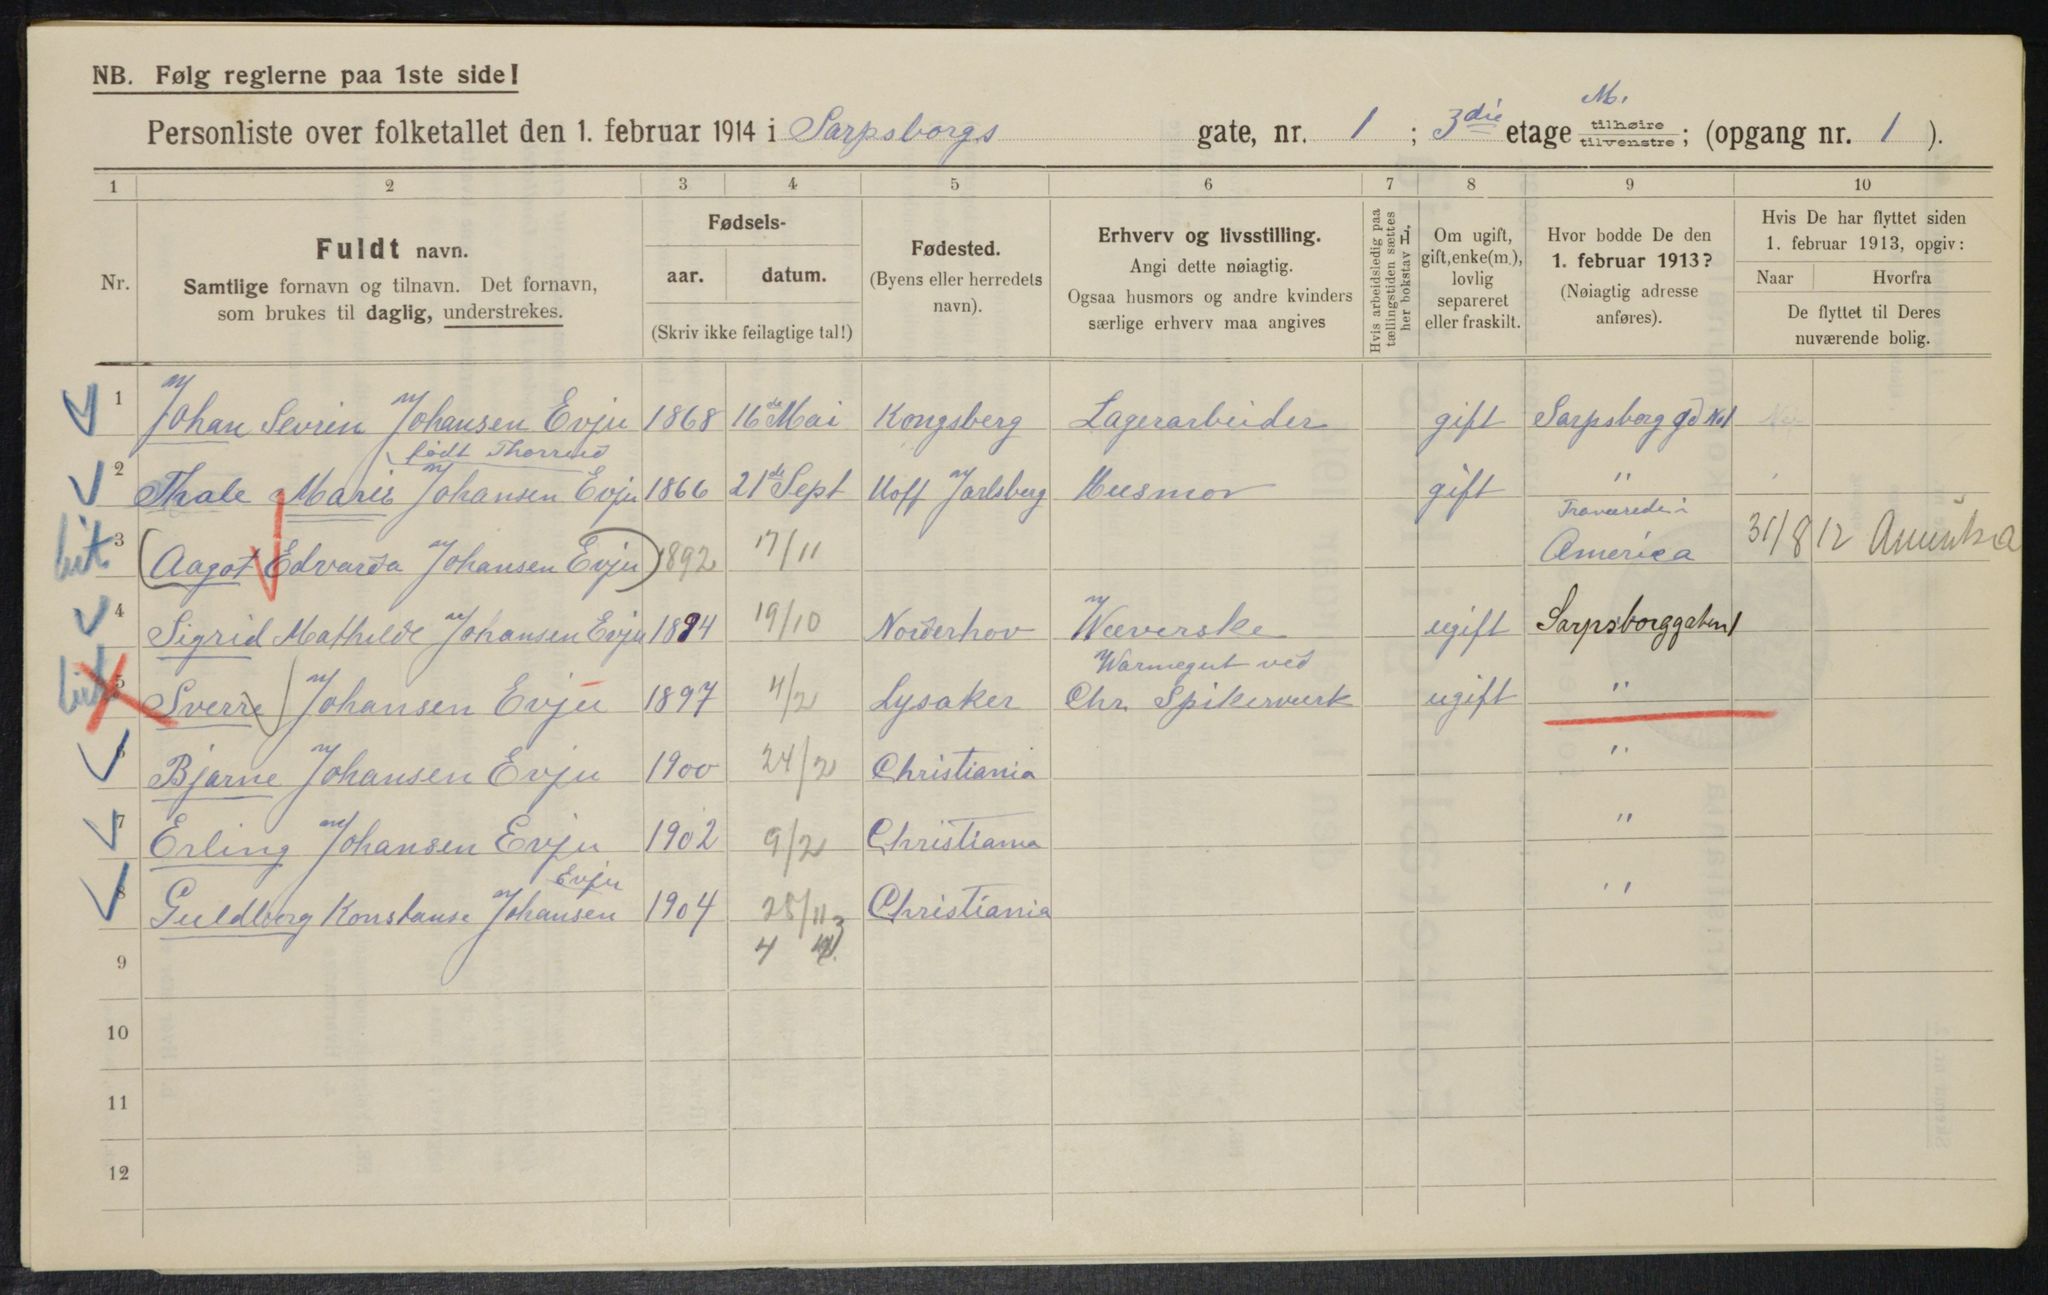 NB. Følg reglerne paa 1ste side!
M.
Personliste over folketallet den 1. februar 1914 i Sarpsborgs gate, nr. 1 ; 3die etage tilhøire tilvenstre ; (opgang nr. 1 ).
1 2 3 4 5 6 7 8 9 10
Nr.
Fuldt navn.
Samtlige fornavn og tilnavn. Det fornavn,
som brukes til daglig, understrekes.
Fødsels-
aar. datum.
(Skriv ikke feilagtige tal!)
Fødested.
(Byens eller herredets
navn).
Erhverv og livsstilling.
Angi dette nøiagtig.
Ogsaa husmors og andre kvinders
særlige erhverv maa angives
Hvis arbeidsledig paa
tællingstiden sættes
her bokstav L,
Om ugift,
gift, enke(m.),
lovlig
separeret
eller fraskilt.
Hvor bodde De den
1. februar 1913?
(Nøiagtig adresse
anføres).
Hvis De har flyttet siden
1. februar 1913, opgiv:
Naar Hvorfra
De flyttet til Deres
nuværende bolig.
1 Johan Sevrin Johansen Evju 1868 16de Mai Kongsberg Lagerarbeider gift Sarpsborg gd No1
født Thorrud
2 Thale Marie Johansen Evju 1866 21de Sept Hoff Jarlsberg Husmor gift "
Fraværede i
3 (Aagot Edvarda Johansen Evju) 1892 17/11 America 31/8 12 Amerika
4 Sigrid Mathilde Johansen Evju 1894 19/10 Norderhov Væverske ugift Sarpsborggaten 1
Varmegut ved
5 Sverre Johansen Evju 1897 4/2 Lysaker Chr. Spikerverk ugift "
6 Bjarne Johansen Evju 1900 24/2 Christiania "
7 Erling Johansen Evju 1902 9/2 Christiania "
Evju
8 Guldborg Konstanse Johansen 1904 25/11 Christiania "
3
4
9
10
11
12